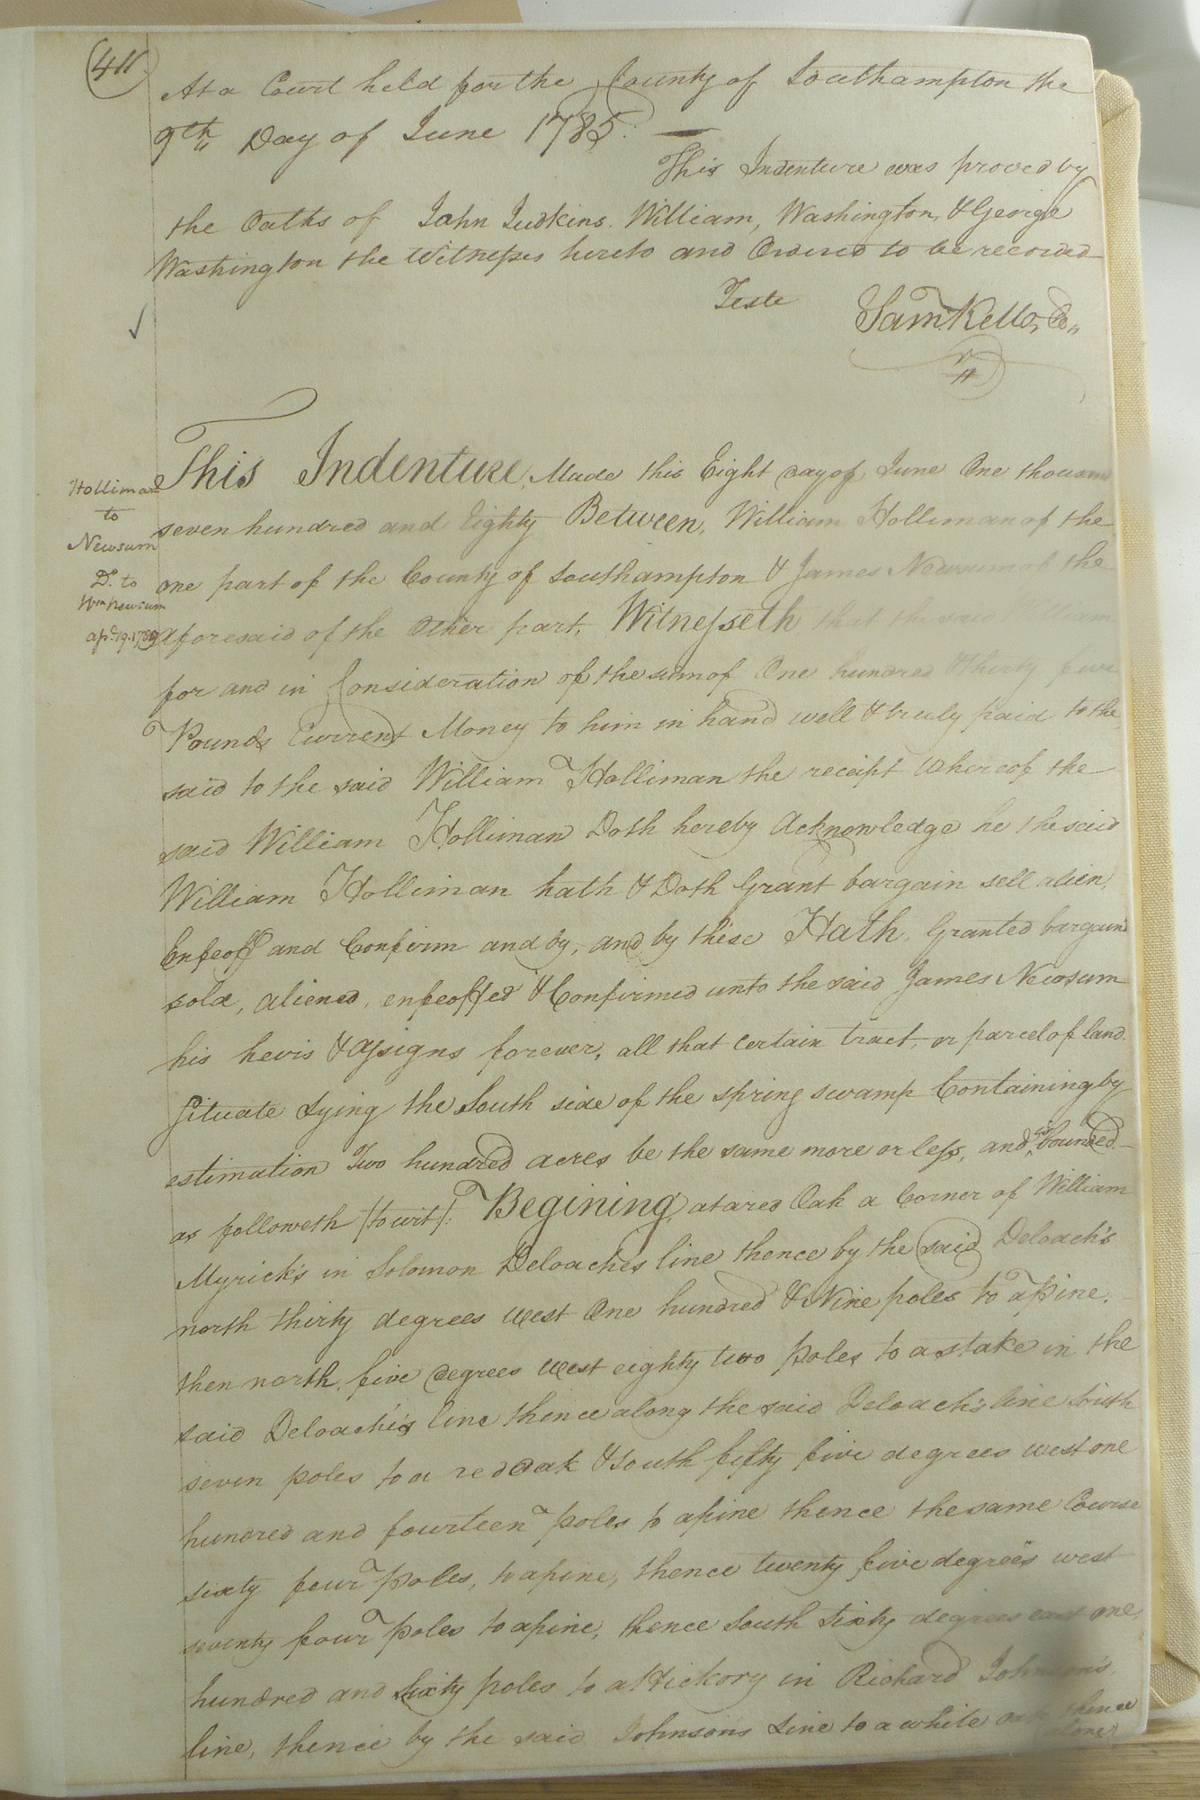 411
At a Court held for the County of Southampton the
9th Day of June 1785. —
This Indenture was proved by
the Oaths of John Judkins. William, Washington, & George
Washington the Witnesses hereto and Ordered to be recorded
Teste Saml Kello, Co,,
Holliman
to
Newsum
Dd. to
Wm Newsum
apl. 19. 1789
This Indenture, Made this Eight day of June One thousand
seven hundred and Eighty Between, William Holliman of the
one part of the County of Southampton & James Newsum of the
aforesaid of the Other part, Witnesseth that the said William
for and in Consideration of the sum of One hundred & thirty five
Pounds Current Money to him in hand well & truly paid to the
said to the said William Holliman the receipt whereof the
said William Holliman Doth hereby Acknowledge he the said
William Holliman hath & Doth Grant bargain sell alien,
Enfeoff and Confirm and by, and by these Hath Granted bargaind
sold, aliened, enfeoffed & Confirmed unto the said James Newsum
his hevis & assigns forever, all that certain tract, or parcel of land.
Situate Lying the South side of the spring swamp Containing by
estimation Two hundred acres be the same more or less, and is bounded
as followeth (to wit): Begining, at a red Oak a Corner of William
Myrick's in Solomon Deloaches line thence by the said Deloach's
north thirty degrees west One hundred & Nine poles to a pine.
then north, five degrees west eighty two poles to a stake in the
said Deloach's line thence along the said Deloach's line South
seven poles to a red oak & South fifty five degrees west one
hundred and fourteen poles to a pine thence the same Course
sixty four poles, to a pine, thence twenty five degrees west
seventy four poles to a pine, thence South Sixty degrees east one
hundred and Sixty poles to a Hickory in Richard Johnson's
line, thence by the said Johnson's Line to a white oak thence